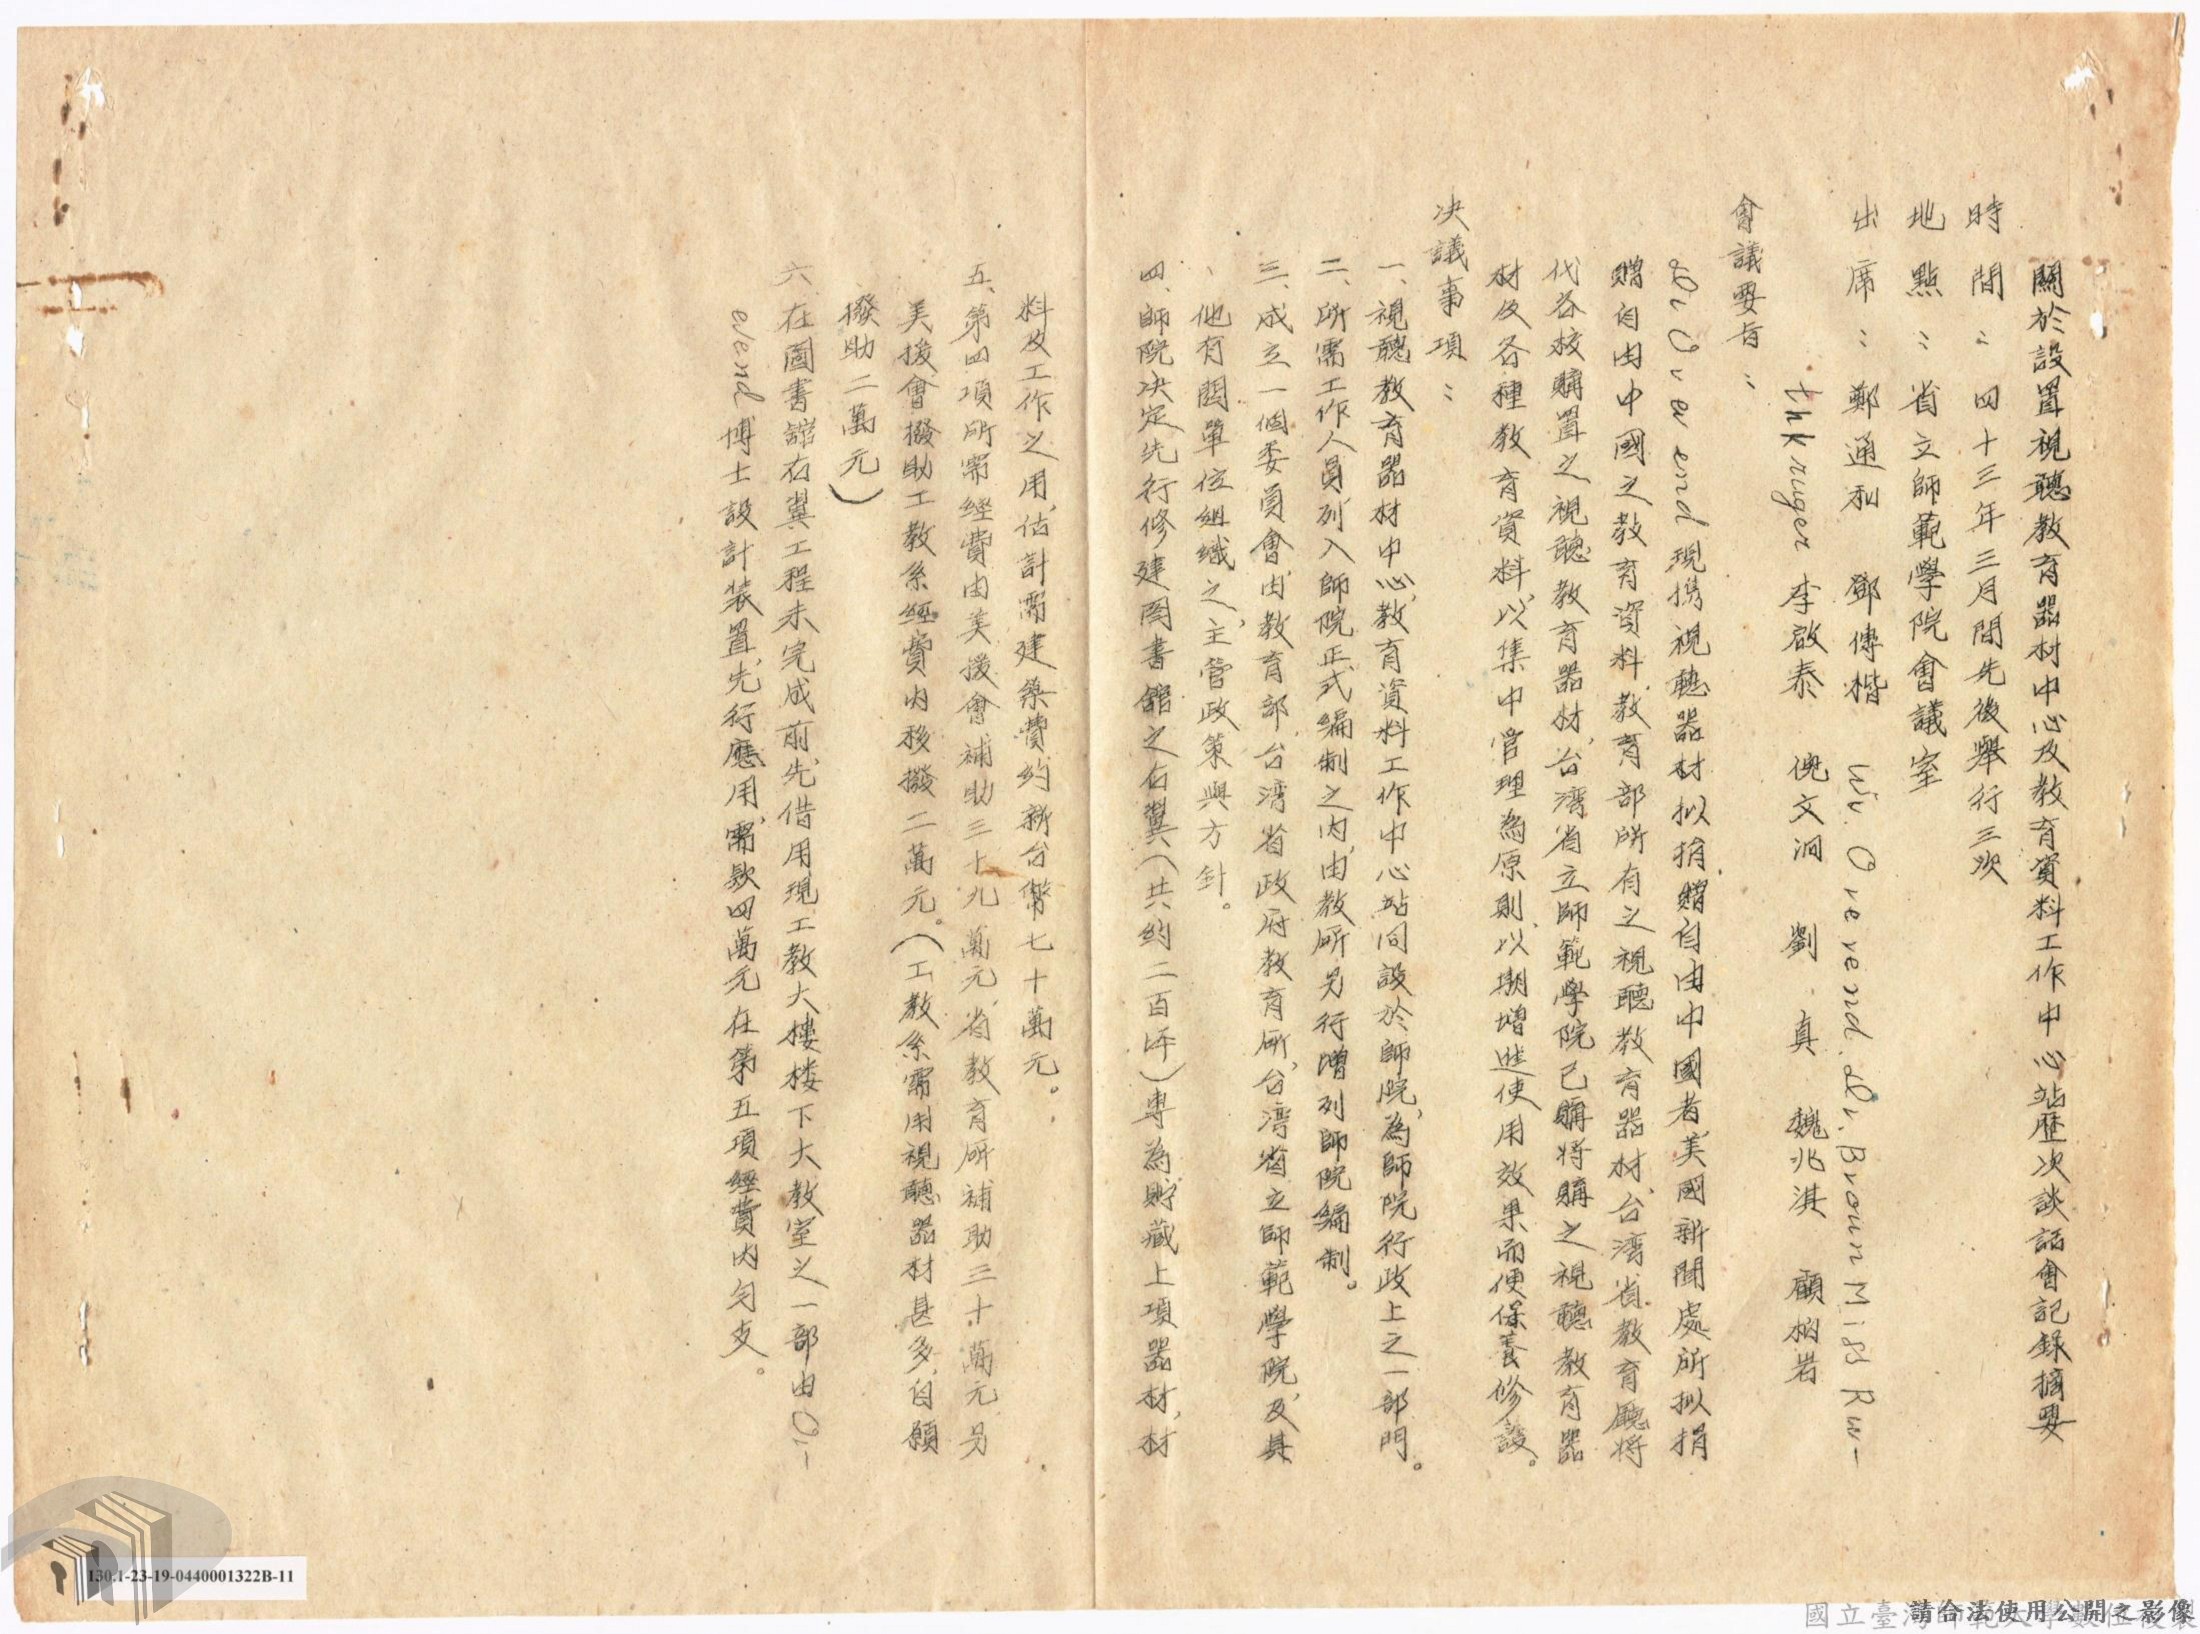 關於設置視聽教育器材中心及教育資料工作中心站歷次談話會記錄摘要
時間：四十三年三月間先後舉行三次
地點：省立師範學院會議室
出席：鄭通和 鄧傳楷 Dr. Overend. Dr. Brown Miss Ru-
thkruger 李啟泰 倪文泂 劉真 魏兆淇 顧柏岩
會議要旨：
Dr Overend現携視聽器材拟捐贈自由中國者、美國新聞處所拟捐
贈自由中國之教育資料、教育部所有之視聽教育器材、台湾省教育廳将
代各校購置之視聽教育器材、台湾省立師範學院已購将購之視聽教育器
材及各種教育資料、以集中管理為原則、以期增進使用效果而便保養修設。
决議事項：
一、視聽教育器材中心、教育資料工作中心站同設於師院、為師院行政上之一部門。
二、所需工作人員列入師院正式編制之内、由教厛另行增列師院編制。
三、成立一個委員會、由教育部、台湾省政府教育厛、台湾省立師範學院、及其
他有関單位組織之、主管政策與方針。
四、師院决定先行修建图書舘之右翼（共約二百坪）專為貯藏上項器材、材
料及工作之用、估計需建築費約新台幣七十萬元。
五、第四項所需經費由美援會補助三十九萬元、省教育厛補助三十萬元、另
美援會撥助工教系經費内移撥二萬元。（工教系需用視聽器材甚多、自願
撥助二萬元）
六、在圖書舘右翼工程未完成前、先借用現工教大樓楼下大教室之一部由Ov-
erend博士設計装置、先行應用、需款四萬元在第五項經費内匀支。
130.1-23-19-0440001322B-11
請合法使用公開之影像